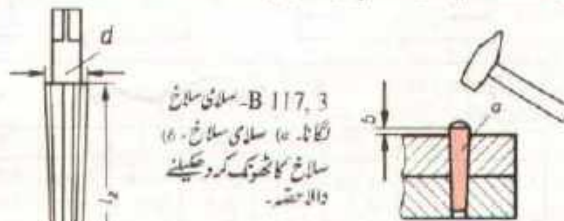 d
B 117, 3 - سلامی سلاخ
لگانا۔ a) سلامی سلاخ، b)
سلاخ کا ٹھونک کر دھکیلنے
والا حصّہ۔
l₂
b
a